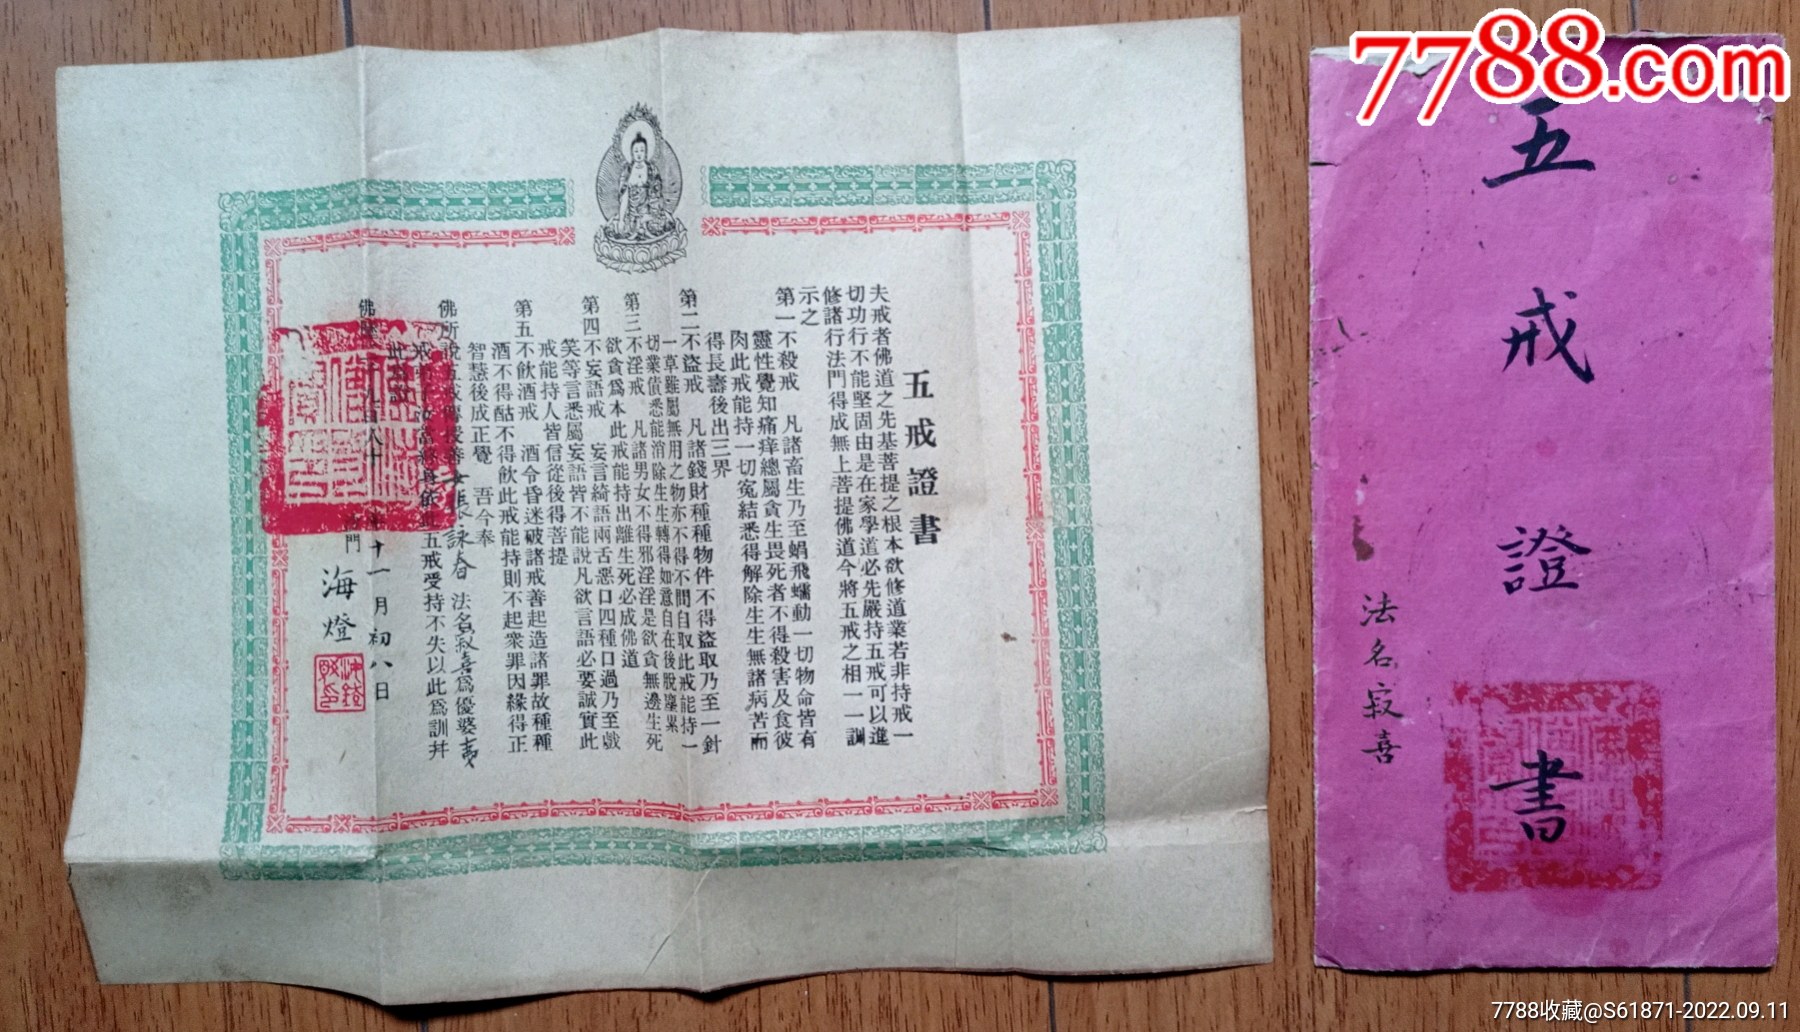 7788.com
五戒證書
夫戒者佛道之先基菩提之根本欲修道業若非持戒一
切功行不能堅固由是在家學道必先嚴持五戒可以進
修諸行法門得成無上菩提佛道今將五戒之相一一訓
示之
第一不殺戒 凡諸畜生乃至蜎飛蠕動一切物命皆有
靈性覺知痛痒總屬貪生畏死者不得殺害及食彼
肉此戒能持一切寃結悉得解除生生無諸病苦而
得長壽後出三界
第二不盜戒 凡諸錢財種種物件不得盜取乃至一針
一草雖屬無用之物亦不得不問自取此戒能持一
切業債悉能消除生生轉得如意自在後脫塵累
第三不淫戒 凡諸男女不得邪淫淫是欲貪無邊生死
欲貪爲本此戒能持出離生死必成佛道
第四不妄語戒 妄言綺語兩舌惡口四種口過乃至戲
笑等言悉屬妄語皆不能說凡欲言語必要誠實此
戒能持人皆信從後得菩提
第五不飲酒戒 酒令昏迷破諸戒善起造諸罪故種種
酒不得酤不得飲此戒能持則不起衆罪因緣得正
智慧後成正覺 吾今奉
佛所說五戒傳授善女張詠春 法名寂喜爲優婆夷
戒 依此五戒受持不失以此爲訓幷
此
佛 十一月初八日
沙門 海燈
五戒證書
法名寂喜
7788收藏@S61871-2022.09.11